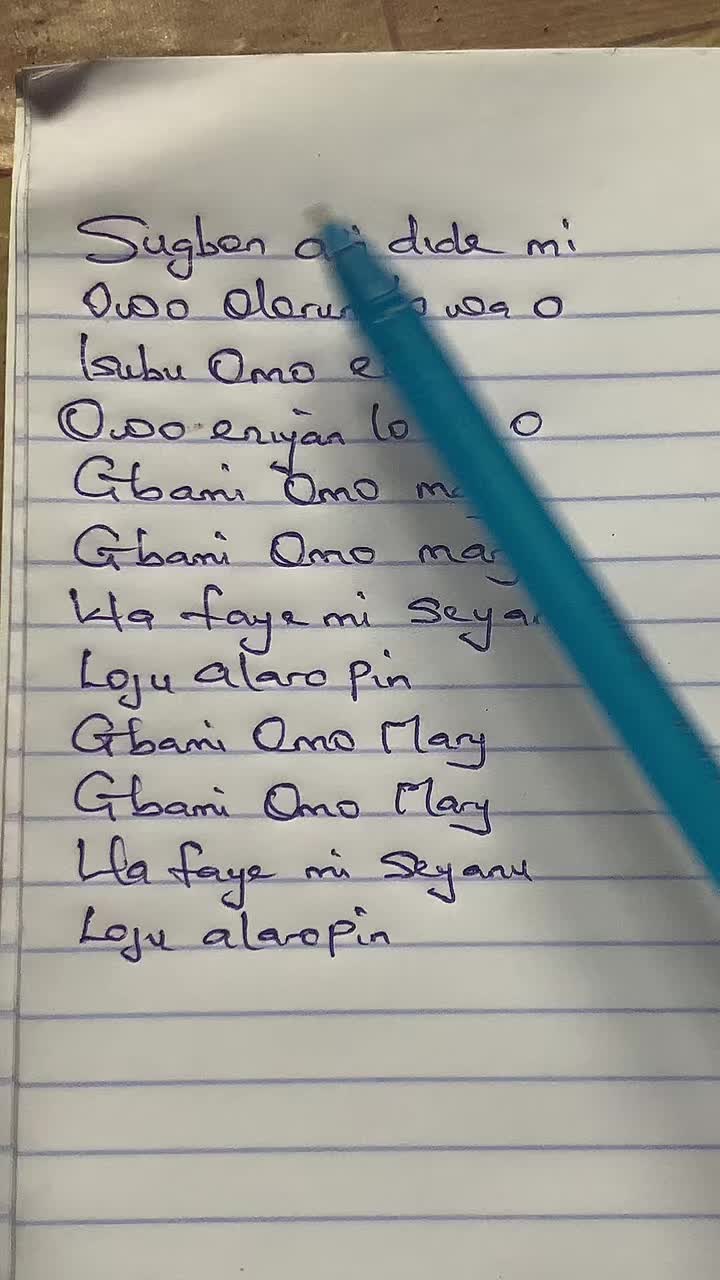 Sugbon dide mi
Owo wa o
Isubu Omo
Owo eniyan lo o
Gbami Omo
Gbami Omo
Wa faye mi
Loju alaro pin
Gbami Omo Mary
Gbami Omo Mary
Wa faye mi Seyanu
Loju alaropin